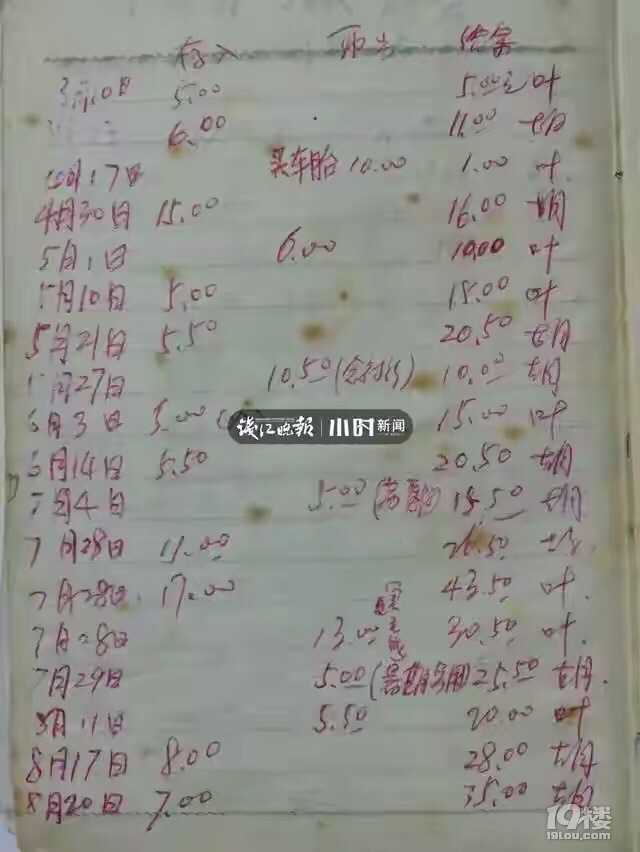 存入 取出 结余
月10日 5.00 5.00元 叶
6.00 11.00 胡
月17日 买车胎 10.00 1.00 叶
4月30日 15.00 16.00 胡
5月1日 6.00 10.00 叶
5月10日 5.00 15.00 叶
5月21日 5.50 20.50 胡
月27日 10.50 10.00 胡
6月3日 5.00 15.00 叶
钱江晚报 小时新闻
6月14日 5.50 20.50 胡
7月4日 5.00 15.50 胡
7月28日 11.00 26.50
7月28日 17.00 43.50 叶
7月28日 13.00 30.50 叶
7月29日 5.00(暑期家用) 25.50 胡
8月11日 5.50 20.00 叶
8月17日 8.00 28.00 胡
8月20日 7.00 35.00 胡
19楼
19lou.com